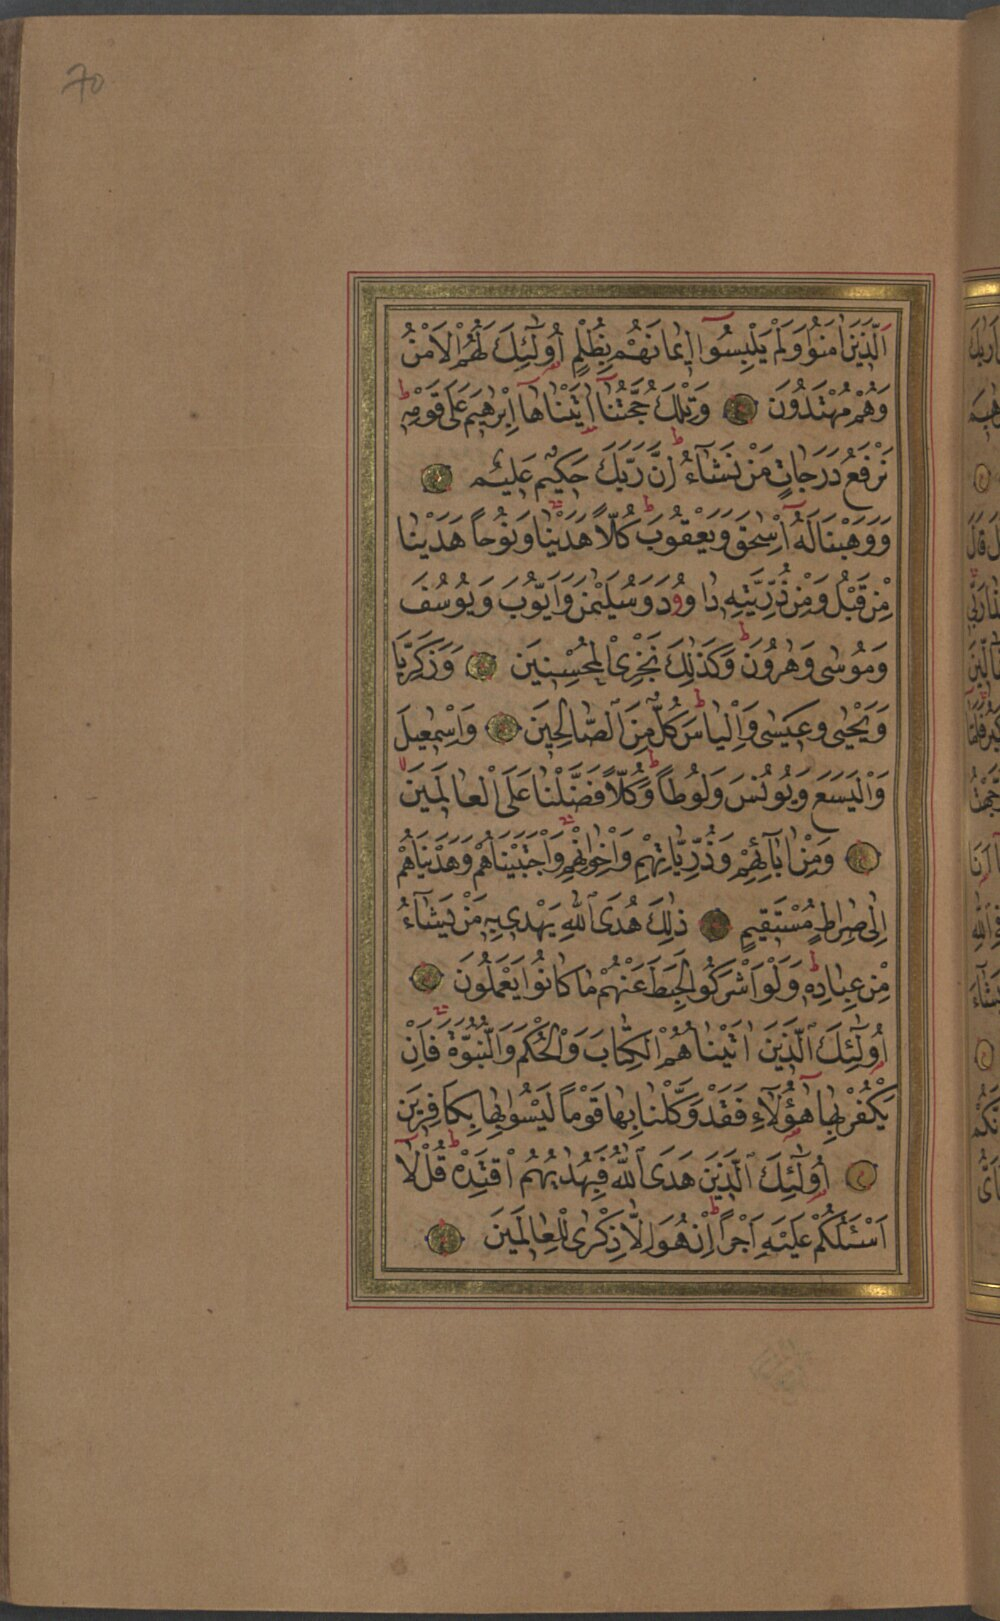 70
اَلَّذِينَ اٰمَنُوا وَلَمْ يَلْبِسُوٓا اِيمَانَهُمْ بِظُلْمٍ اُولٰٓئِكَ لَهُمُ الْاَمْنُ
وَهُمْ مُهْتَدُونَ وَتِلْكَ حُجَّتُنَٓا اٰتَيْنَاهَٓا اِبْرٰهِيمَ عَلٰى قَوْمِهِ
نَرْفَعُ دَرَجَاتٍ مَنْ نَشَٓاءُ اِنَّ رَبَّكَ حَكِيمٌ عَلِيمٌ
وَوَهَبْنَا لَهُٓ اِسْحٰقَ وَيَعْقُوبَ كُلًّا هَدَيْنَا وَنُوحاً هَدَيْنَا
مِنْ قَبْلُ وَمِنْ ذُرِّيَّتِهِ دَاوُودَ وَسُلَيْمٰنَ وَاَيُّوبَ وَيُوسُفَ
وَمُوسٰى وَهٰرُونَ وَكَذٰلِكَ نَجْزِى الْمُحْسِنِينَ وَزَكَرِيَّا
وَيَحْيٰى وَعِيسٰى وَاِلْيَاسَ كُلٌّ مِنَ الصَّالِحِينَ وَاِسْمٰعِيلَ
وَالْيَسَعَ وَيُونُسَ وَلُوطاً وَكُلًّا فَضَّلْنَا عَلَى الْعَالَمِينَ
وَمِنْ اٰبَٓائِهِمْ وَذُرِّيَّاتِهِمْ وَاِخْوَانِهِمْ وَاجْتَبَيْنَاهُمْ وَهَدَيْنَاهُمْ
اِلٰى صِرَاطٍ مُسْتَقِيمٍ ذٰلِكَ هُدَى اللّٰهِ يَهْدِى بِهِ مَنْ يَشَٓاءُ
مِنْ عِبَادِهِ وَلَوْ اَشْرَكُوا لَحَبِطَ عَنْهُمْ مَا كَانُوا يَعْمَلُونَ
اُولٰٓئِكَ الَّذِينَ اٰتَيْنَاهُمُ الْكِتَابَ وَالْحُكْمَ وَالنُّبُوَّةَ فَاِنْ
يَكْفُرْ بِهَا هٰٓؤُلَٓاءِ فَقَدْ وَكَّلْنَا بِهَا قَوْماً لَيْسُوا بِهَا بِكَافِرِينَ
اُولٰٓئِكَ الَّذِينَ هَدَى اللّٰهُ فَبِهُدٰيهُمُ اقْتَدِهْ قُلْ لَٓا
اَسْئَلُكُمْ عَلَيْهِ اَجْراً اِنْ هُوَ اِلَّا ذِكْرٰى لِلْعَالَمِينَ